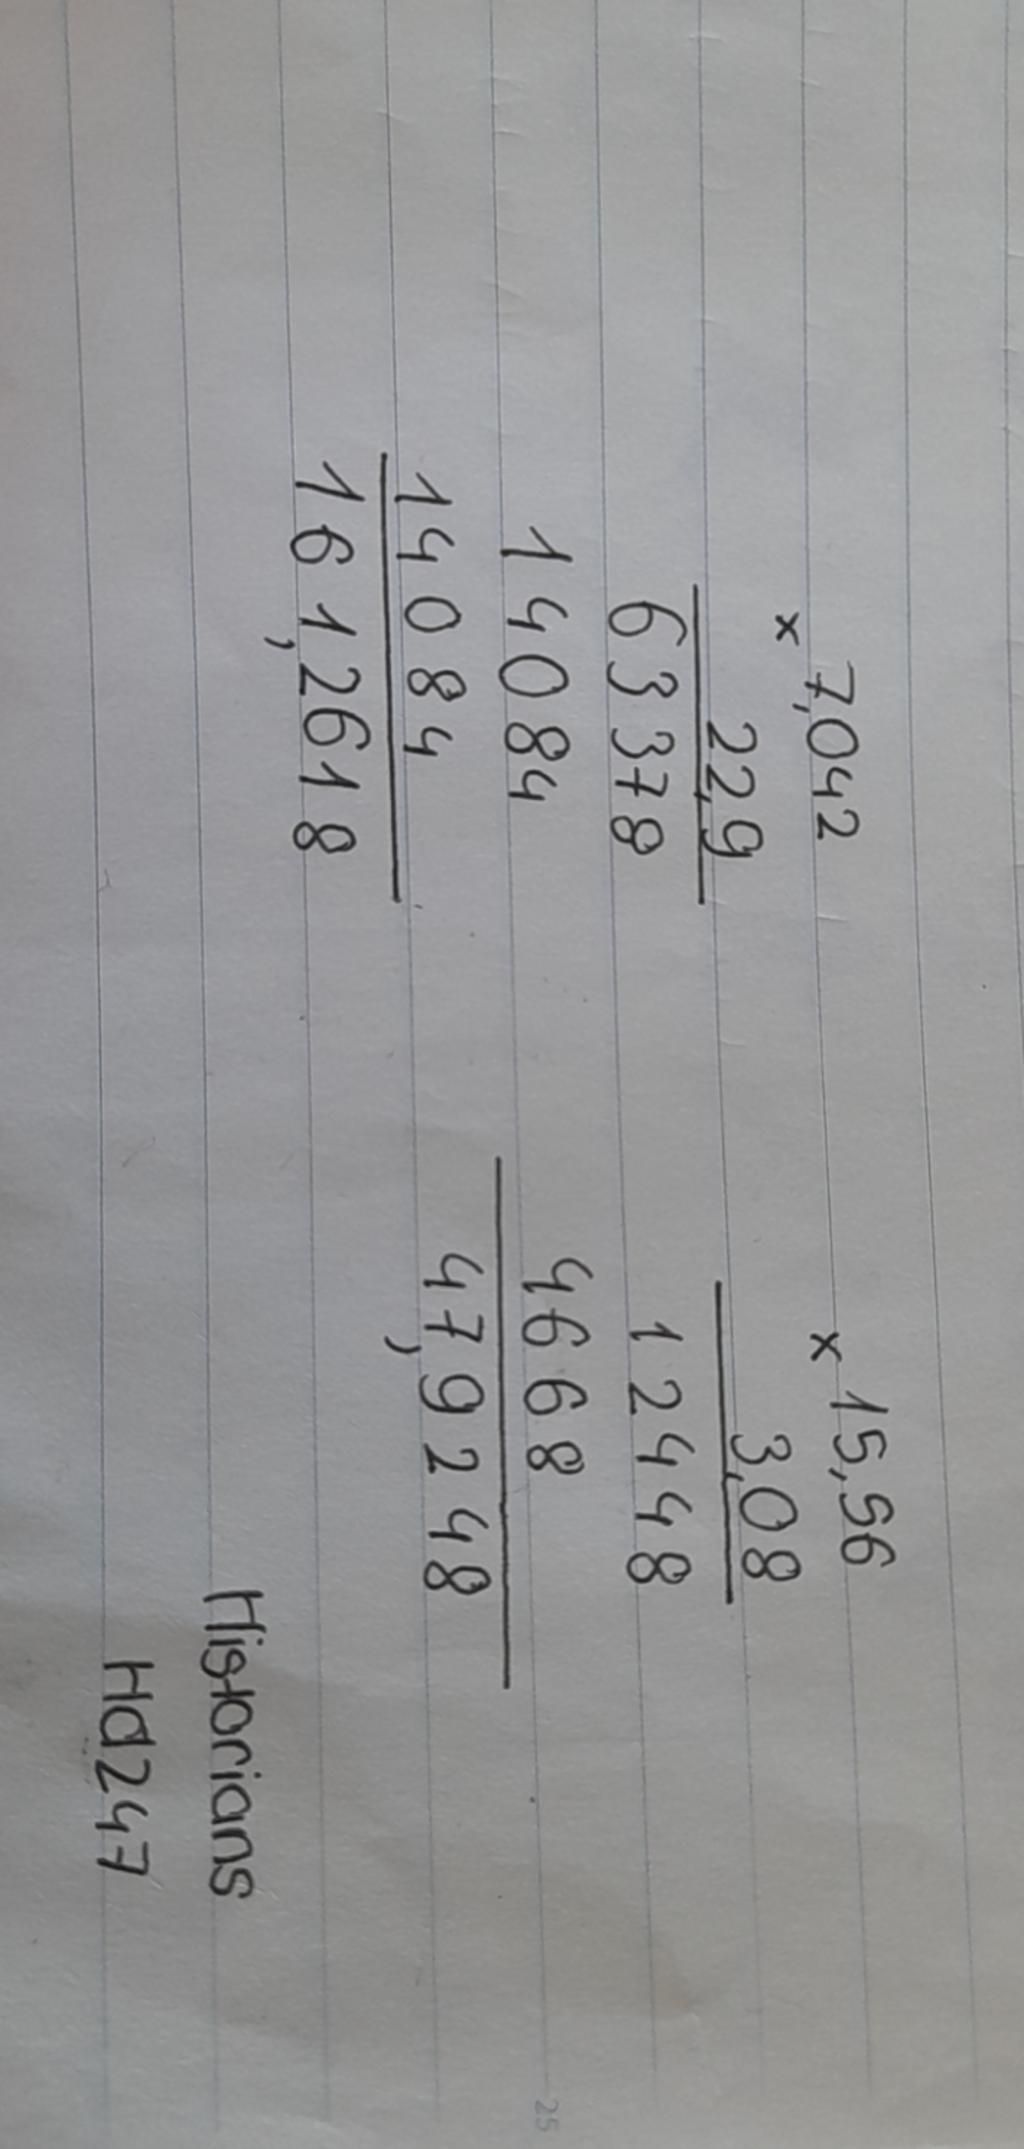 7,042
x 22,9
63378
14084
14084
161,2618
15,56
x 3,08
12448
4668
47,9248
Historians
Hd247
25